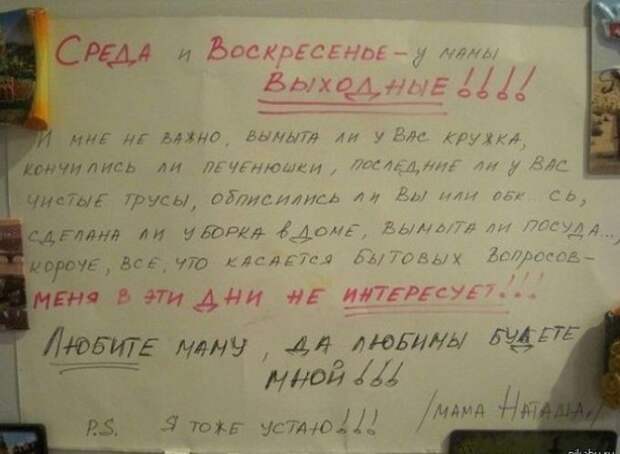 Среда и Воскресенье – у мамы
ВЫХОДНЫЕ!!!!
И мне не важно, вымыта ли у Вас кружка,
кончились ли печенюшки, последние ли у Вас
чистые трусы, обписились ли Вы или обк...сь,
сделана ли уборка в доме, вымыта ли посуда...,
короче, все, что касается бытовых вопросов –
МЕНЯ В ЭТИ ДНИ НЕ ИНТЕРЕСУЕТ!!!
Любите маму, да любимы будете
мной!!!
/мама Наташа/
P.S. Я тоже устаю!!!
pikabu.ru